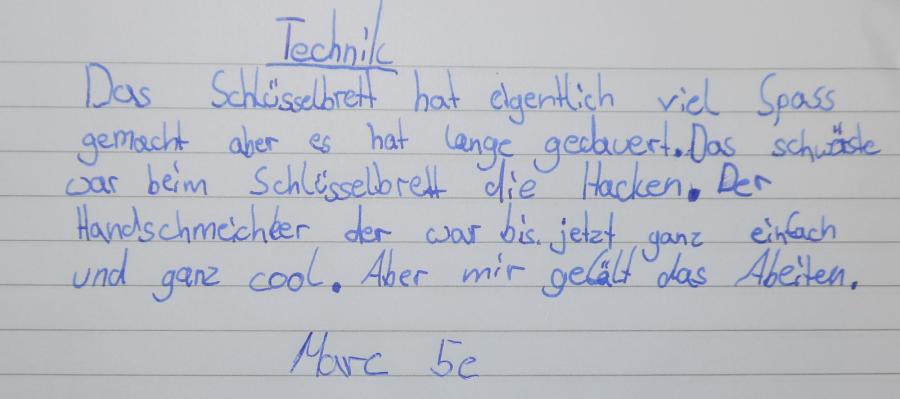 Technik
Das Schlüsselbrett hat eigentlich viel Spass
gemacht aber es hat lange gedauert. Das schwäste
war beim Schlüsselbrett die Hacken. Der
Handschmeichler der war bis. jetzt ganz einfach
und ganz cool. Aber mir gefält das Abeiten.
Marc 5e